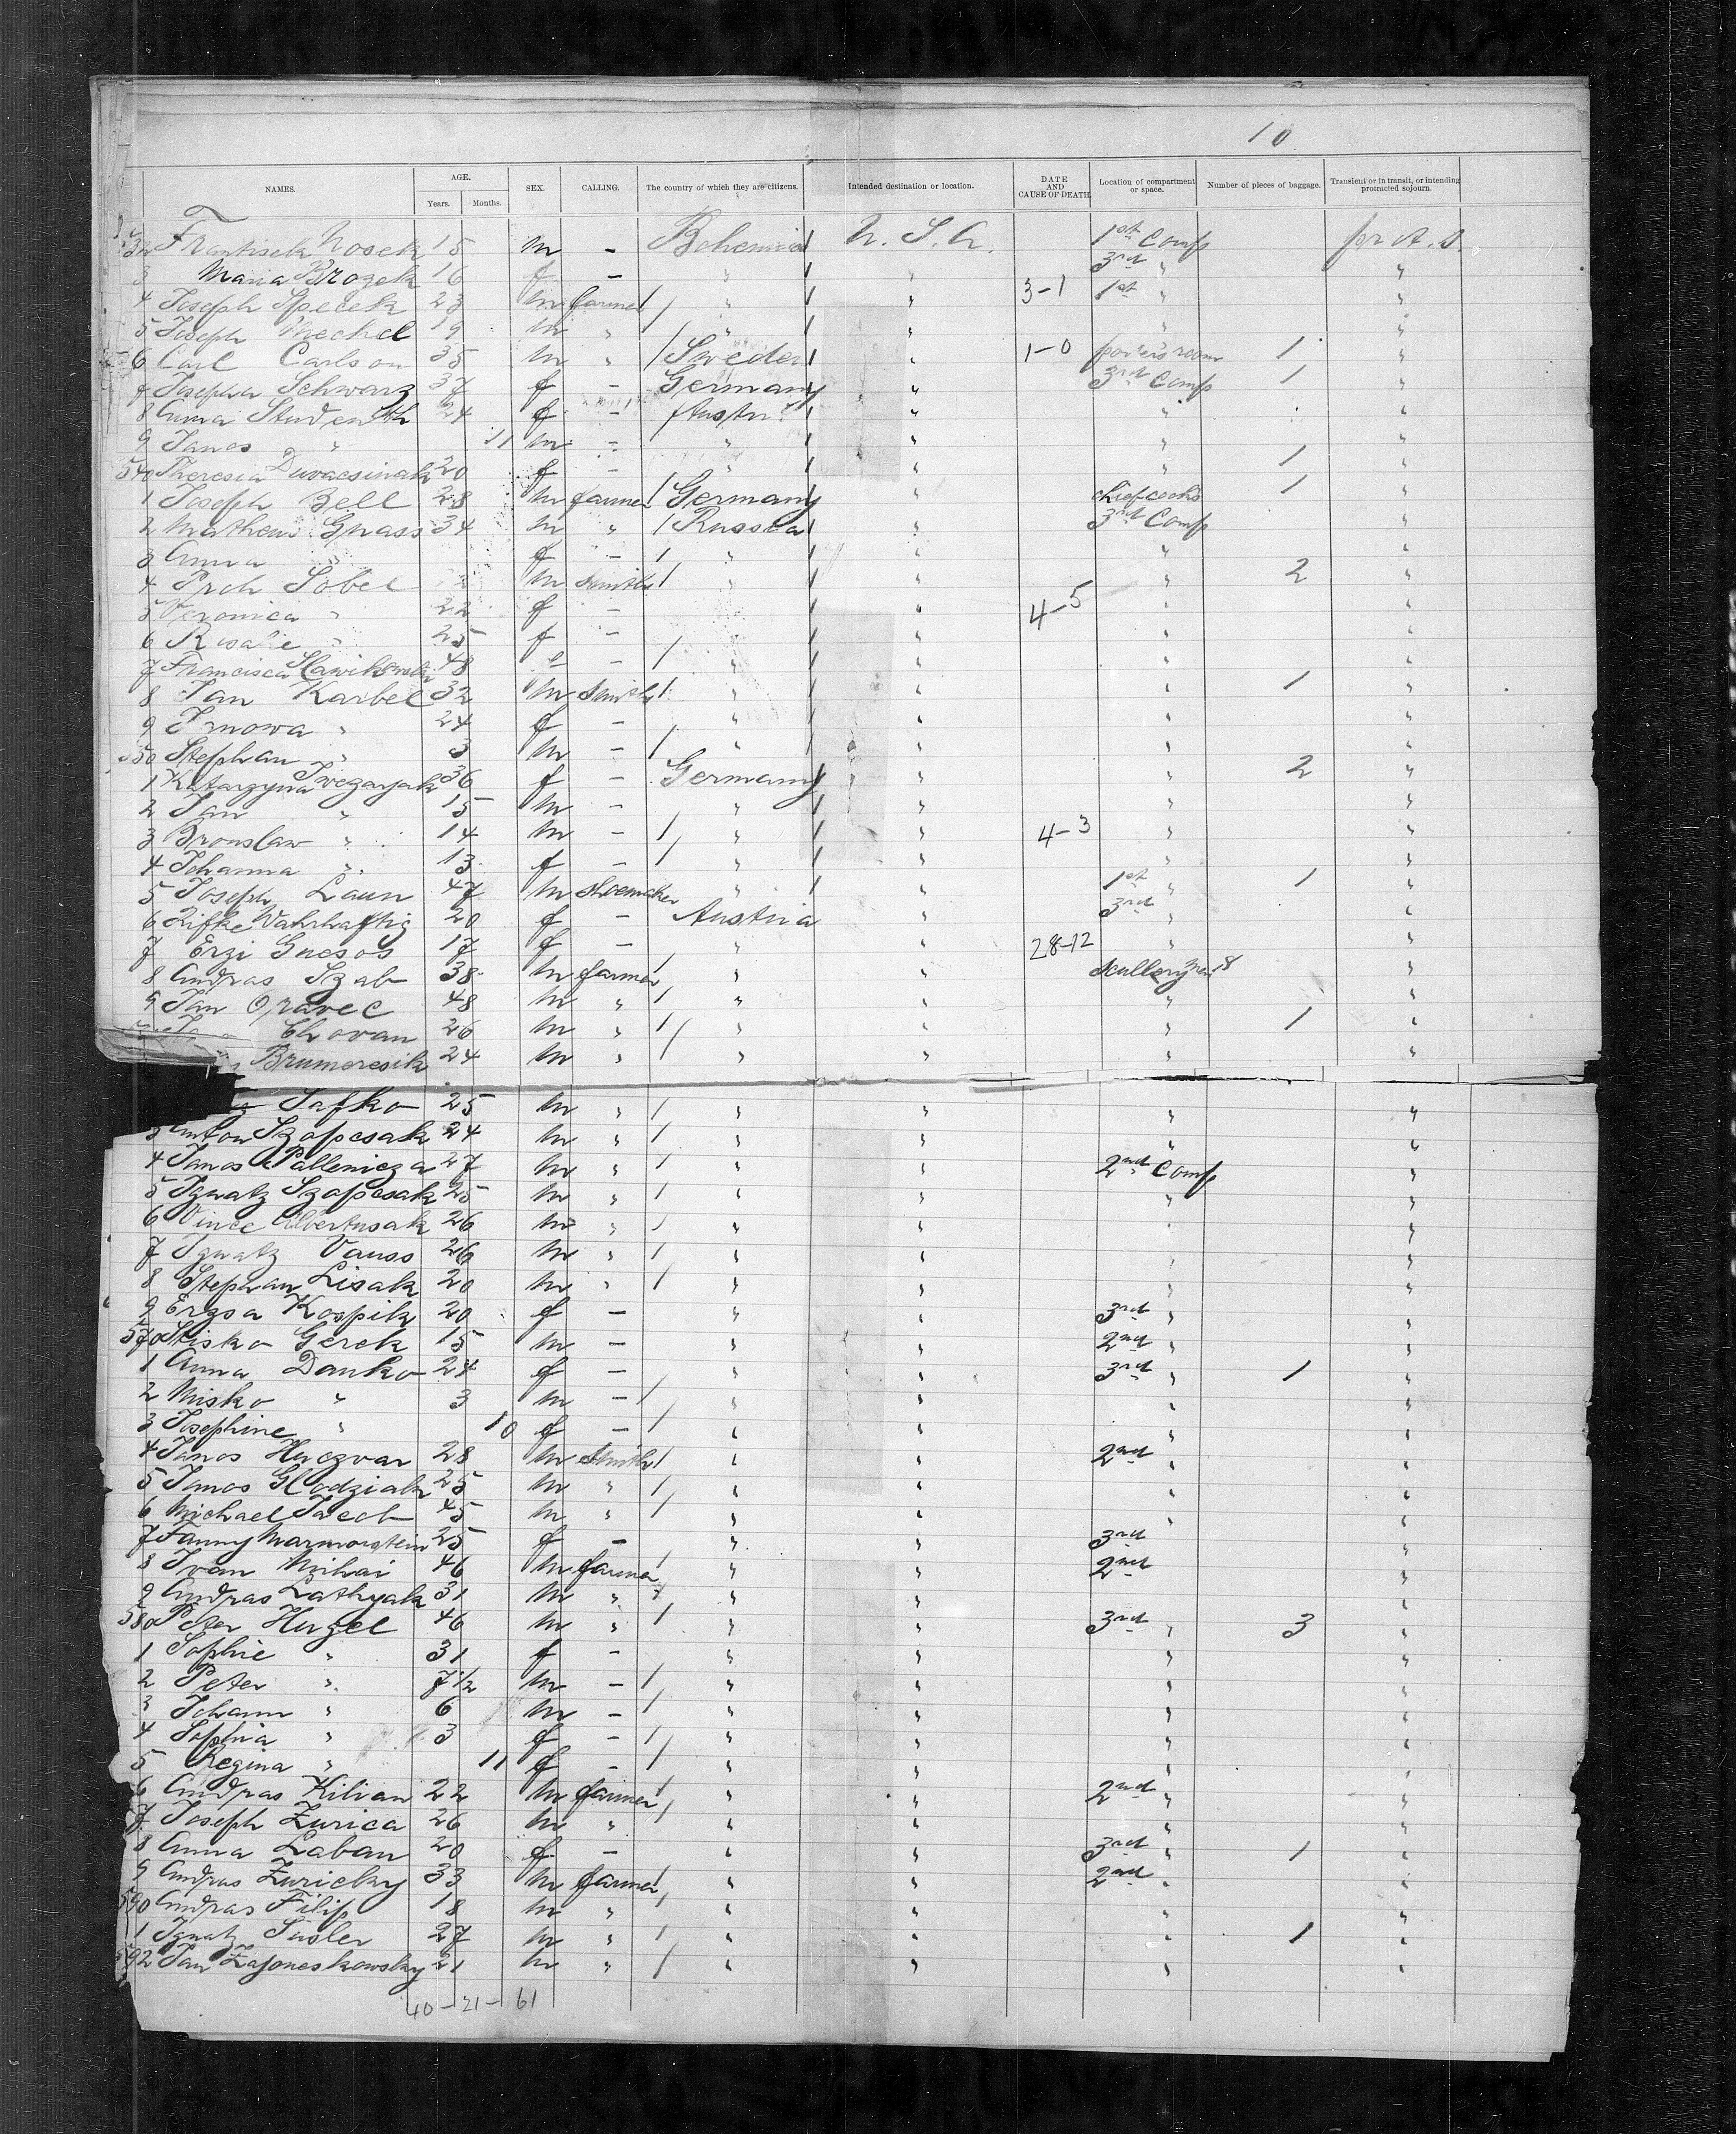 10
NAMES. AGE. Years. Months. SEX. CALLING. The country of which they are citizens. Intended destination or location. DATE AND CAUSE OF DEATH. Location of compartment or space. Number of pieces of baggage. Transient or in transit, or intending protracted sojourn.
32 Frantisek Nosek 15 m - Bohemia U. S. A. 1st Comp
3 Maria Brozek 16 f - " " 3rd " "
4 Joseph Specek 23 m farmer " " 3-1 1st " "
5 Joseph Mechel 19 m " " " " "
6 Carl Carlson 35 m " Sweden " 1-0 porters room 1 "
7 Josepha Schwarz 37 f - Germany " 3rd Comp 1 "
8 Anna 24 f - " " "
9 Janos " 11 m - " " " "
540 Theresia 20 f - " " " 1 "
1 Joseph Bell 28 m farmer Germany " chief cooks 1 "
2 Gnass 34 m " Russia " 3rd Comp "
3 Anna " f - " " " "
4 Sobel m smith " " " 2 "
5 Veronica " 22 f - " 4-5 " "
6 Rosalie " 25 f - " " " "
7 Francisca 48 - " " " "
8 Jan Karbel 32 m smith " " " 1 "
9 " 24 f - " " " "
550 Stephan " 3 m - " " " "
1 Katarzyna 36 f - Germany " " 2 "
2 Jan " 15 m - " " " "
3 Bronslaw " 14 m - " " 4-3 " "
4 Johanna " 13 f - " " " "
5 Joseph Laun 47 m shoemaker " " 1st " 1 "
6 Rifke Wahrhaftig 20 f - Austria " 3rd " "
7 Erzi Gucsos 17 f - " " 28-12 " "
8 Andras Szab 38 m farmer " " "
9 Jan Oravec 48 m " " " " "
Chovan 26 m " " " " 1 "
24 m " " " " "
Safko 25 m " " " " "
3 Anton Szopcsak 24 m " " " " "
4 Janos Pallenicza 27 m " " " 2nd Comp "
5 Ignatz Szopcsak 25 m " " " " "
6 Vince Albertusak 26 m " " " "
7 Ignatz Vauss 26 m " " " " "
8 Stephan Lisak 20 m " " " " "
9 Erzsa Kospik 20 f - " " 3rd " "
570 Gerek 15 m - " " 2nd " "
1 Anna Danko 24 f - " " 3rd " 1 "
2 Misko " 3 m - " " " "
3 Josephine " 10 f - " " " "
4 Janos Huczvar 28 m smith " " 2nd " "
5 Janos Glodziak 25 m " " " " "
6 Michael Jacob 45 m " " " " "
7 Fanny Marmorstein 25 f - " " 3rd "
8 Ivan Mihai 46 m farmer " " 2nd "
9 Andras Lathyak 31 m " " " "
580 Peter Huzel 46 m " " " 3rd " 3 "
1 Sophie " 31 f - " " " "
2 Peter " 7 1/2 m - " " " "
3 Johann " 6 m - " " " "
4 Sophia " 3 f - " " " "
5 Regina " 11 f - " " " "
6 Andras Kilian 22 m farmer " " 2nd " "
7 Joseph Zurica 26 m " " " " "
8 Anna Laban 20 f - " " 3rd " 1 "
9 Andras Zuricky 33 m farmer " " 2nd " "
590 Andras Filip 18 m " " " " "
1 Ignatz Susler 27 m " " " " 1 "
592 Jan Zajoneskowsky 21 m " " " " "
40-21-61